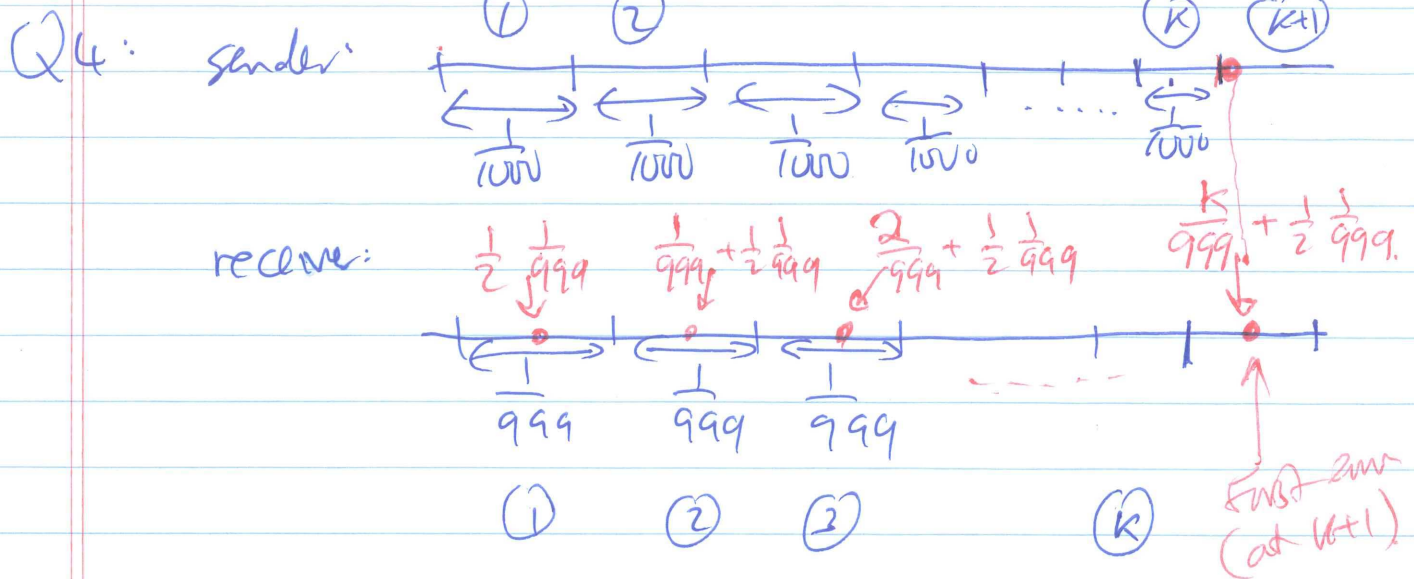 ① ② Ⓚ (K+1)
Q4: sender:
1/1000 1/1000 1/1000 1/1000 ...... 1/1000
receiver: 1/2 1/999 1/999 + 1/2 1/999 2/999 + 1/2 1/999 K/999 + 1/2 1/999.
1/999 1/999 1/999
① ② ③ Ⓚ
First
(at K+1)